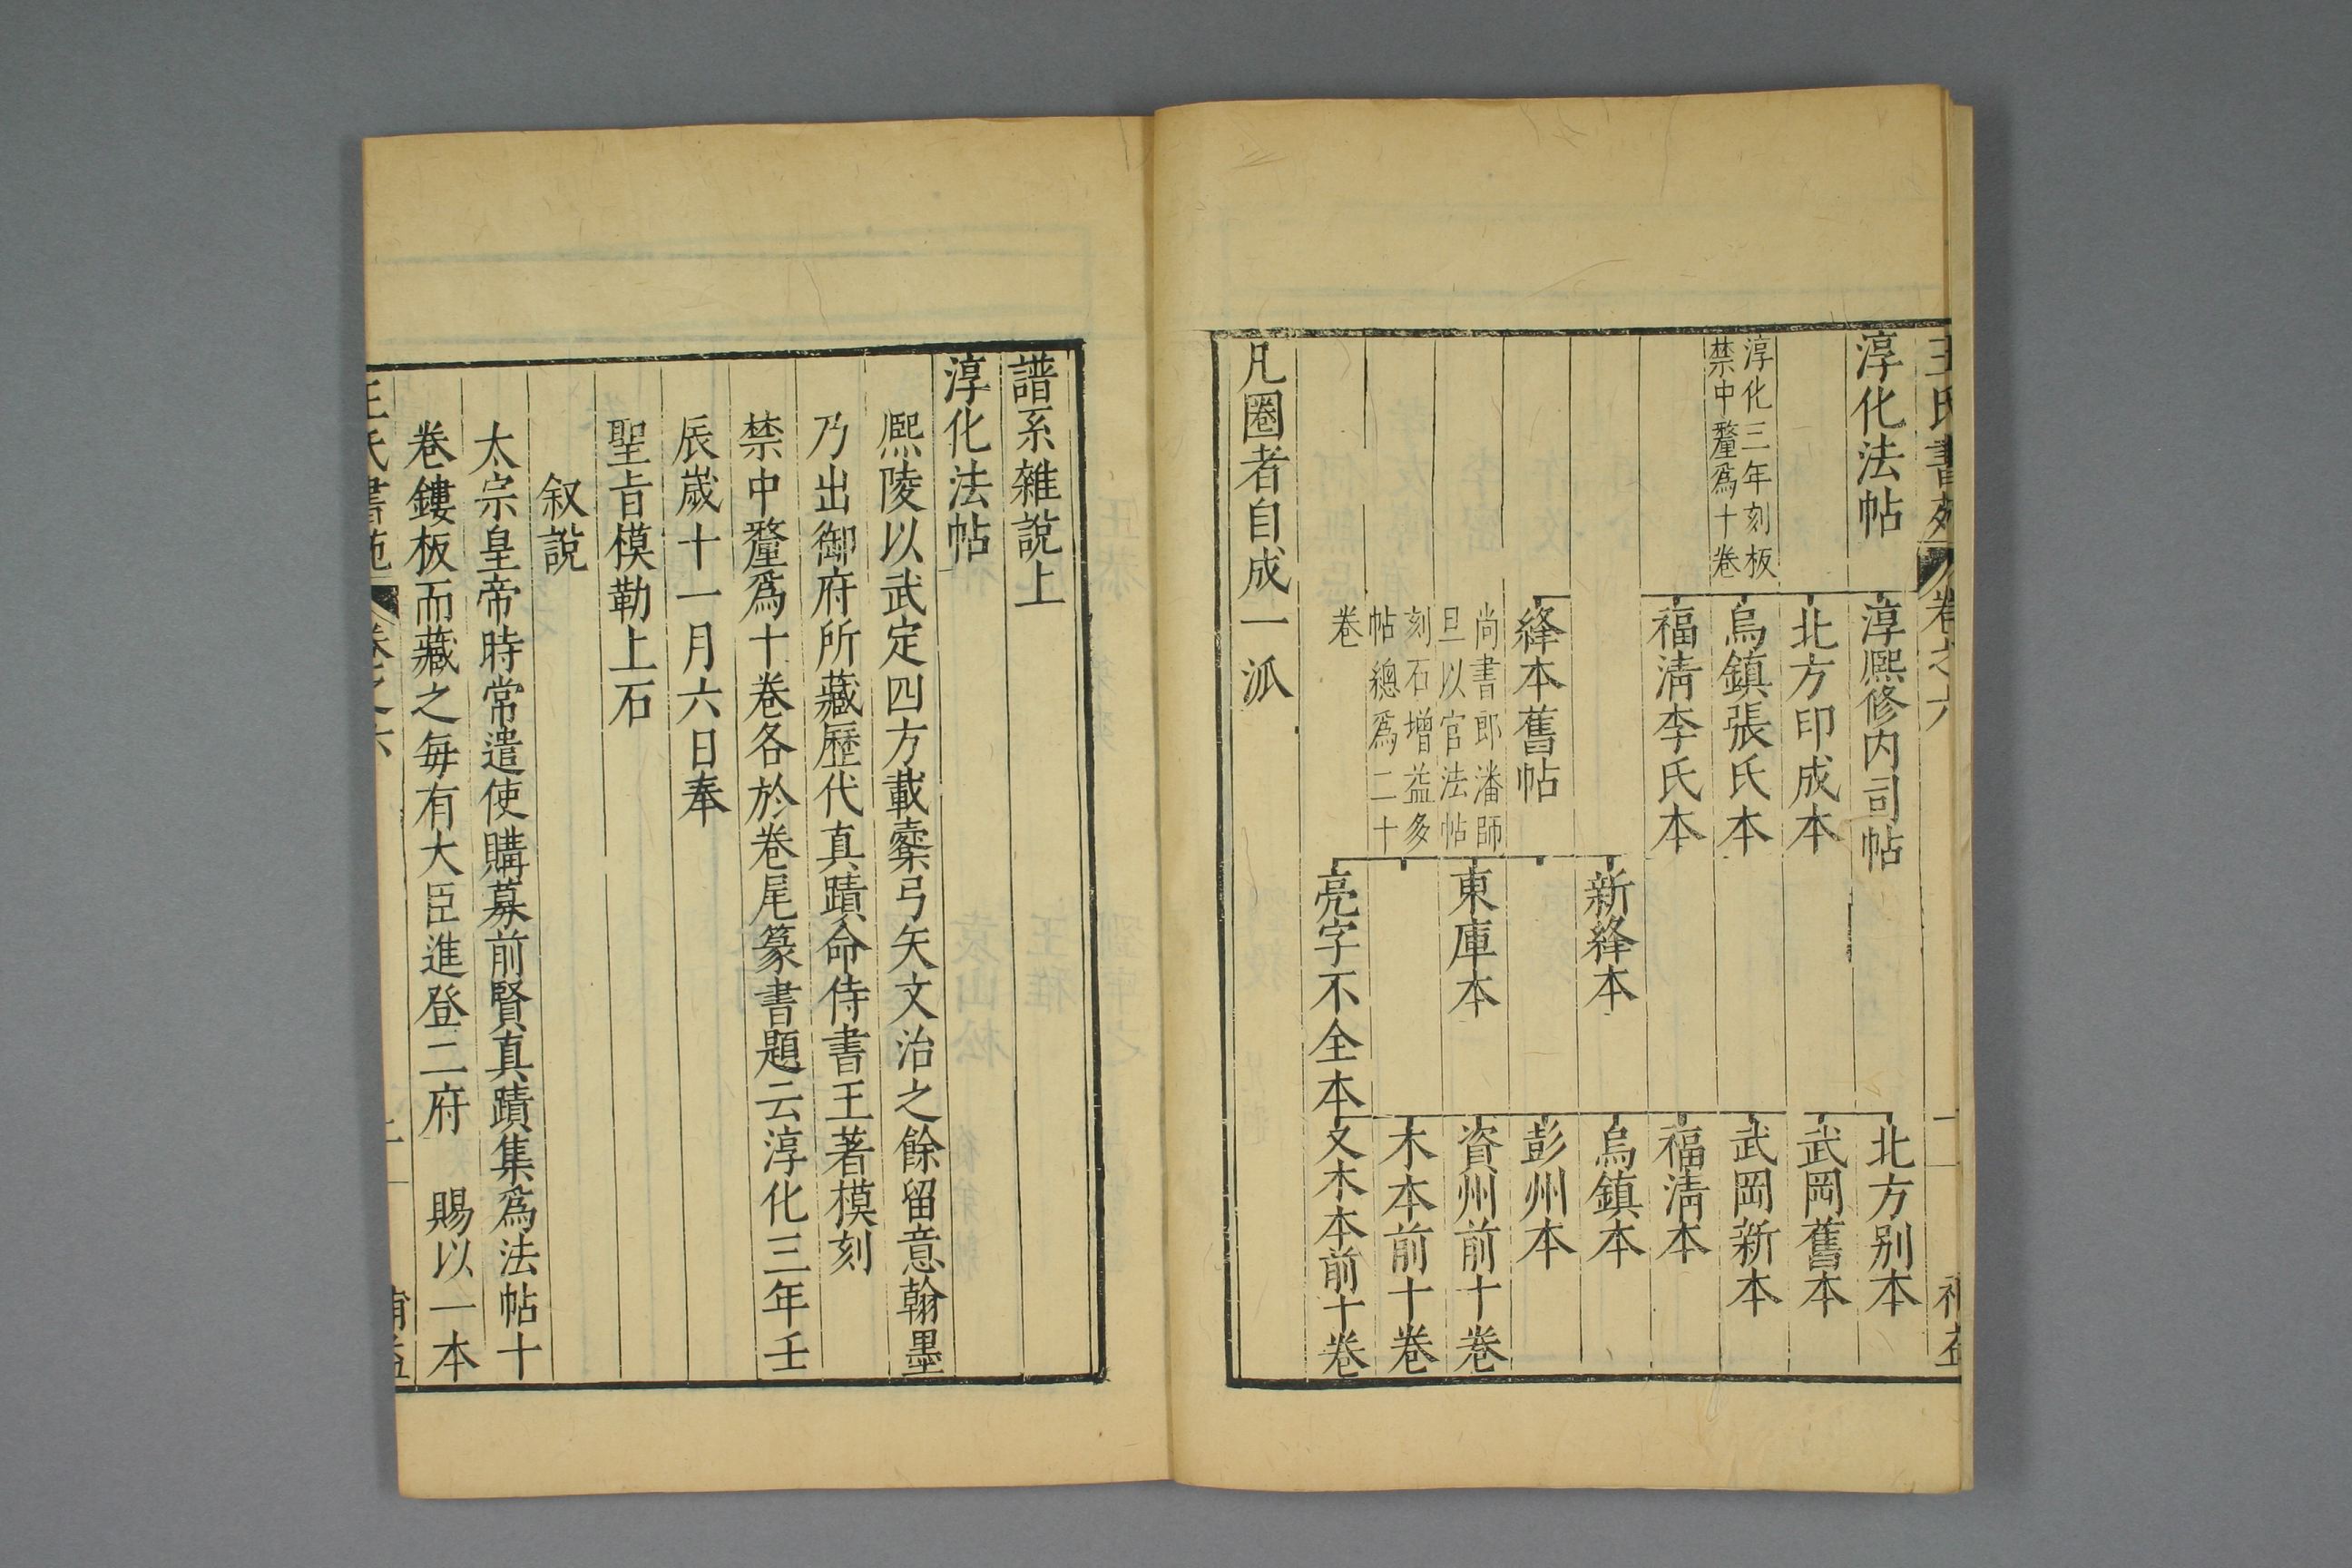 王氏書苑 卷之六
淳化法帖
淳熙修内司帖
北方別本
北方印成本
武岡舊本
淳化三年刻板
禁中釐爲十卷
烏鎮張氏本
武岡新本
福淸李氏本
福淸本
新絳本
烏鎮本
絳本舊帖
彭州本
尚書郎潘師
旦以官法帖
刻石增益多
帖總爲二十
卷
東庫本
資州前十卷
木本前十卷
亮字不全本
又木本前十卷
凡圈者自成一派
譜系雜說上
淳化法帖
熈陵以武定四方載櫜弓矢文治之餘留意翰墨
乃出御府所藏歷代真蹟命侍書王著模刻
禁中釐爲十卷各於卷尾篆書題云淳化三年壬
辰歲十一月六日奉
聖旨模勒上石
叙說
太宗皇帝時常遣使購募前賢真蹟集爲法帖十
卷鏤板而藏之每有大臣進登二府 賜以一本
王氏書苑 卷之六